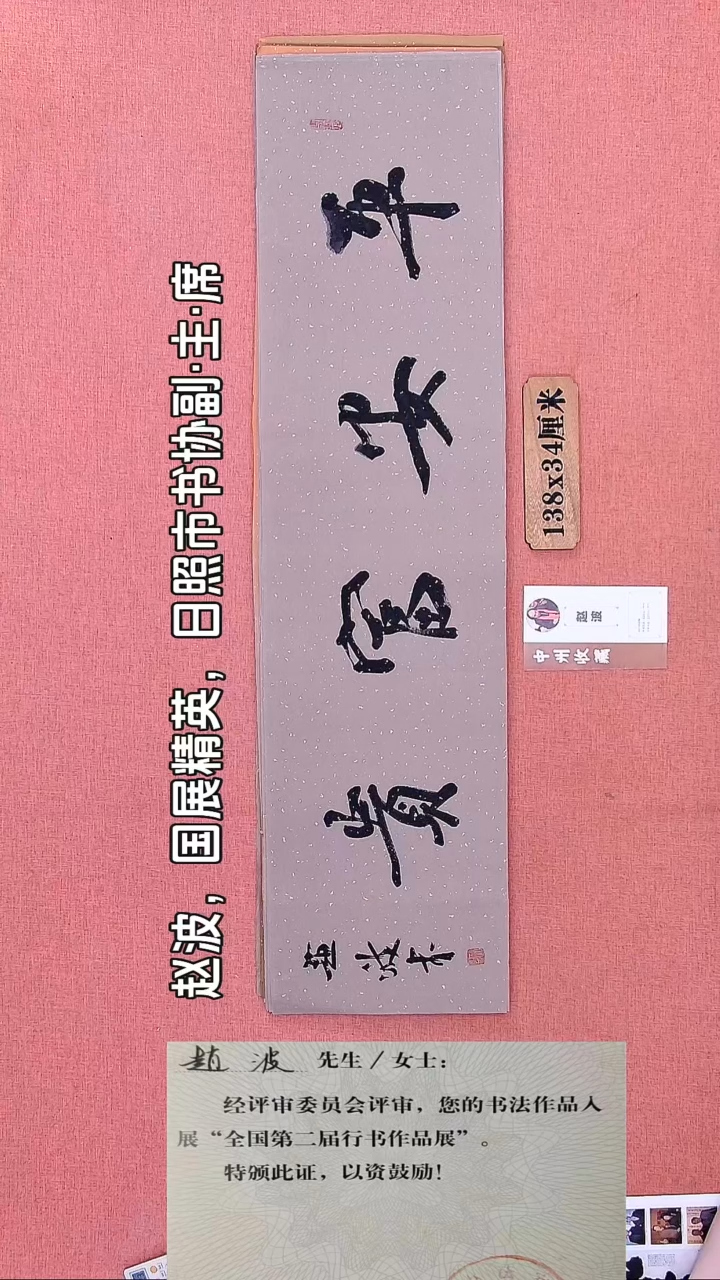 赵波，国展精英，日照市书协副·主·席
平安富貴
138x34厘米
赵波
中州收藏
趙 波 先生/女士：
经评审委员会评审，您的书法作品入
展“全国第二届行书作品展”。
特颁此证，以资鼓励！